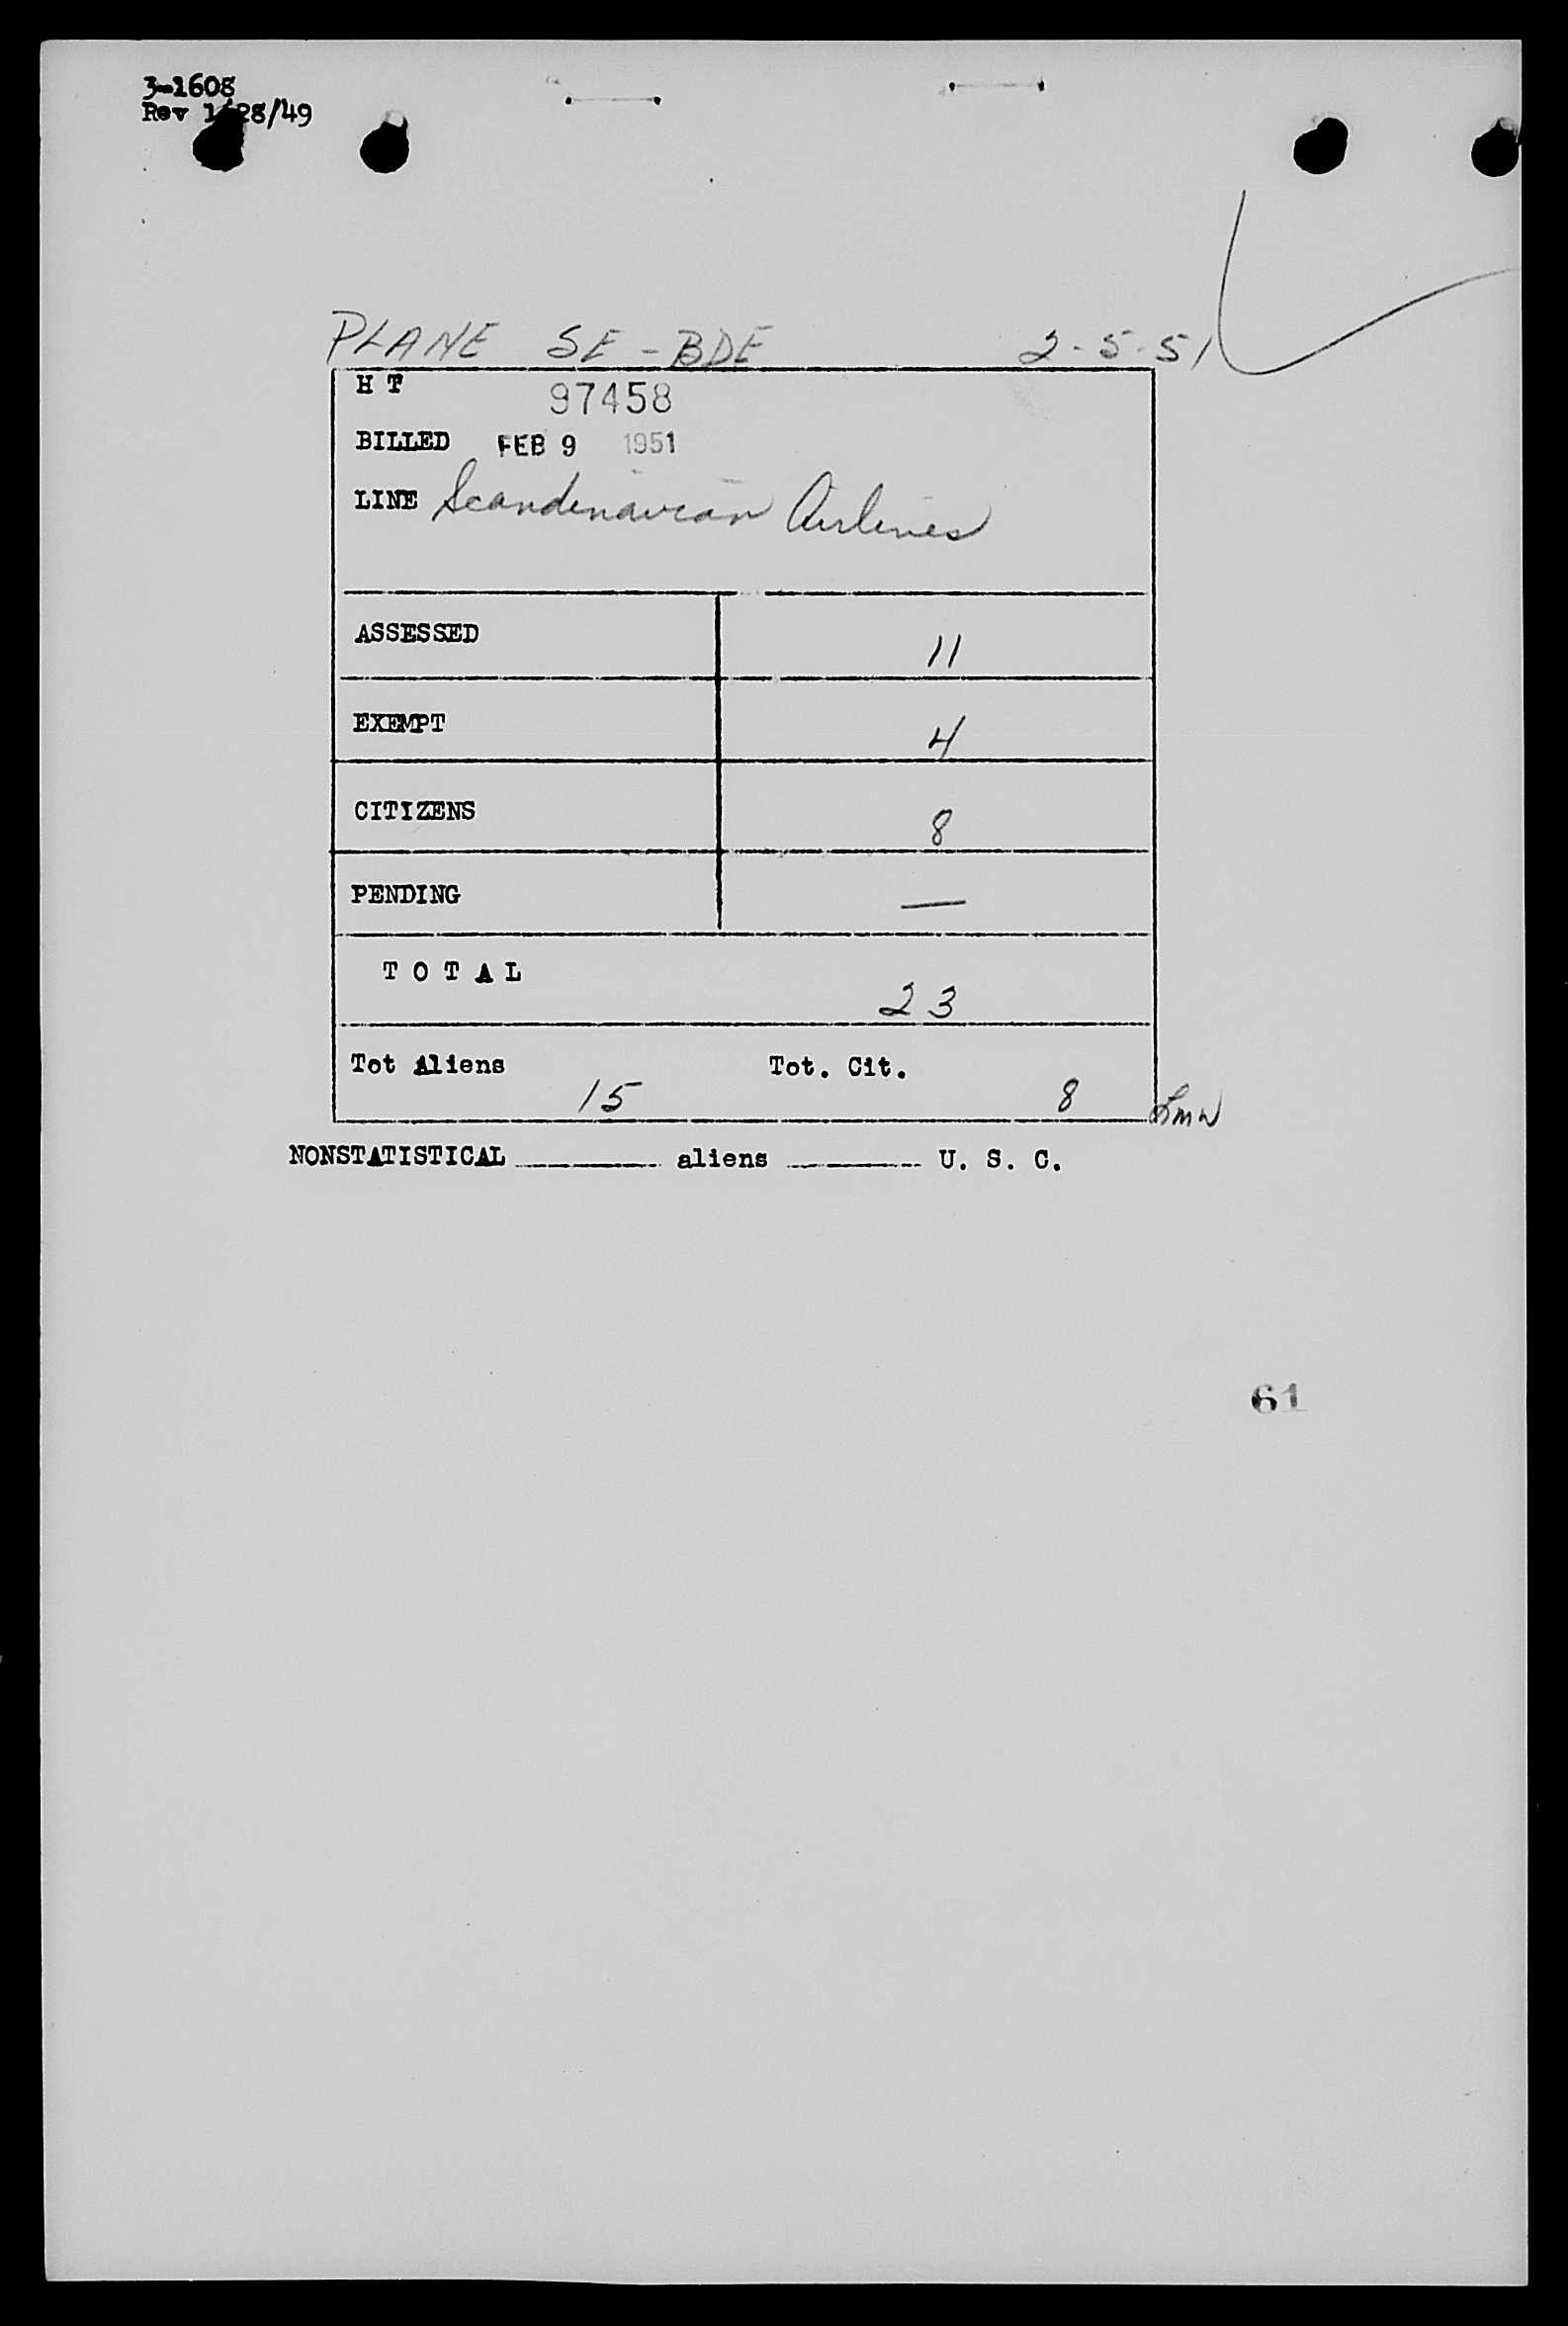 3-1608
Rev 1/28/49
PLANE SE-BDE 2-5-51
H T 97458
BILLED FEB 9 1951
LINE Scandinavian Airlines
ASSESSED 11
EXEMPT 4
CITIZENS 8
PENDING —
T O T A L 23
Tot Aliens 15 Tot. Cit. 8 Lmw
NONSTATISTICAL ______ aliens ______ U. S. C.
61